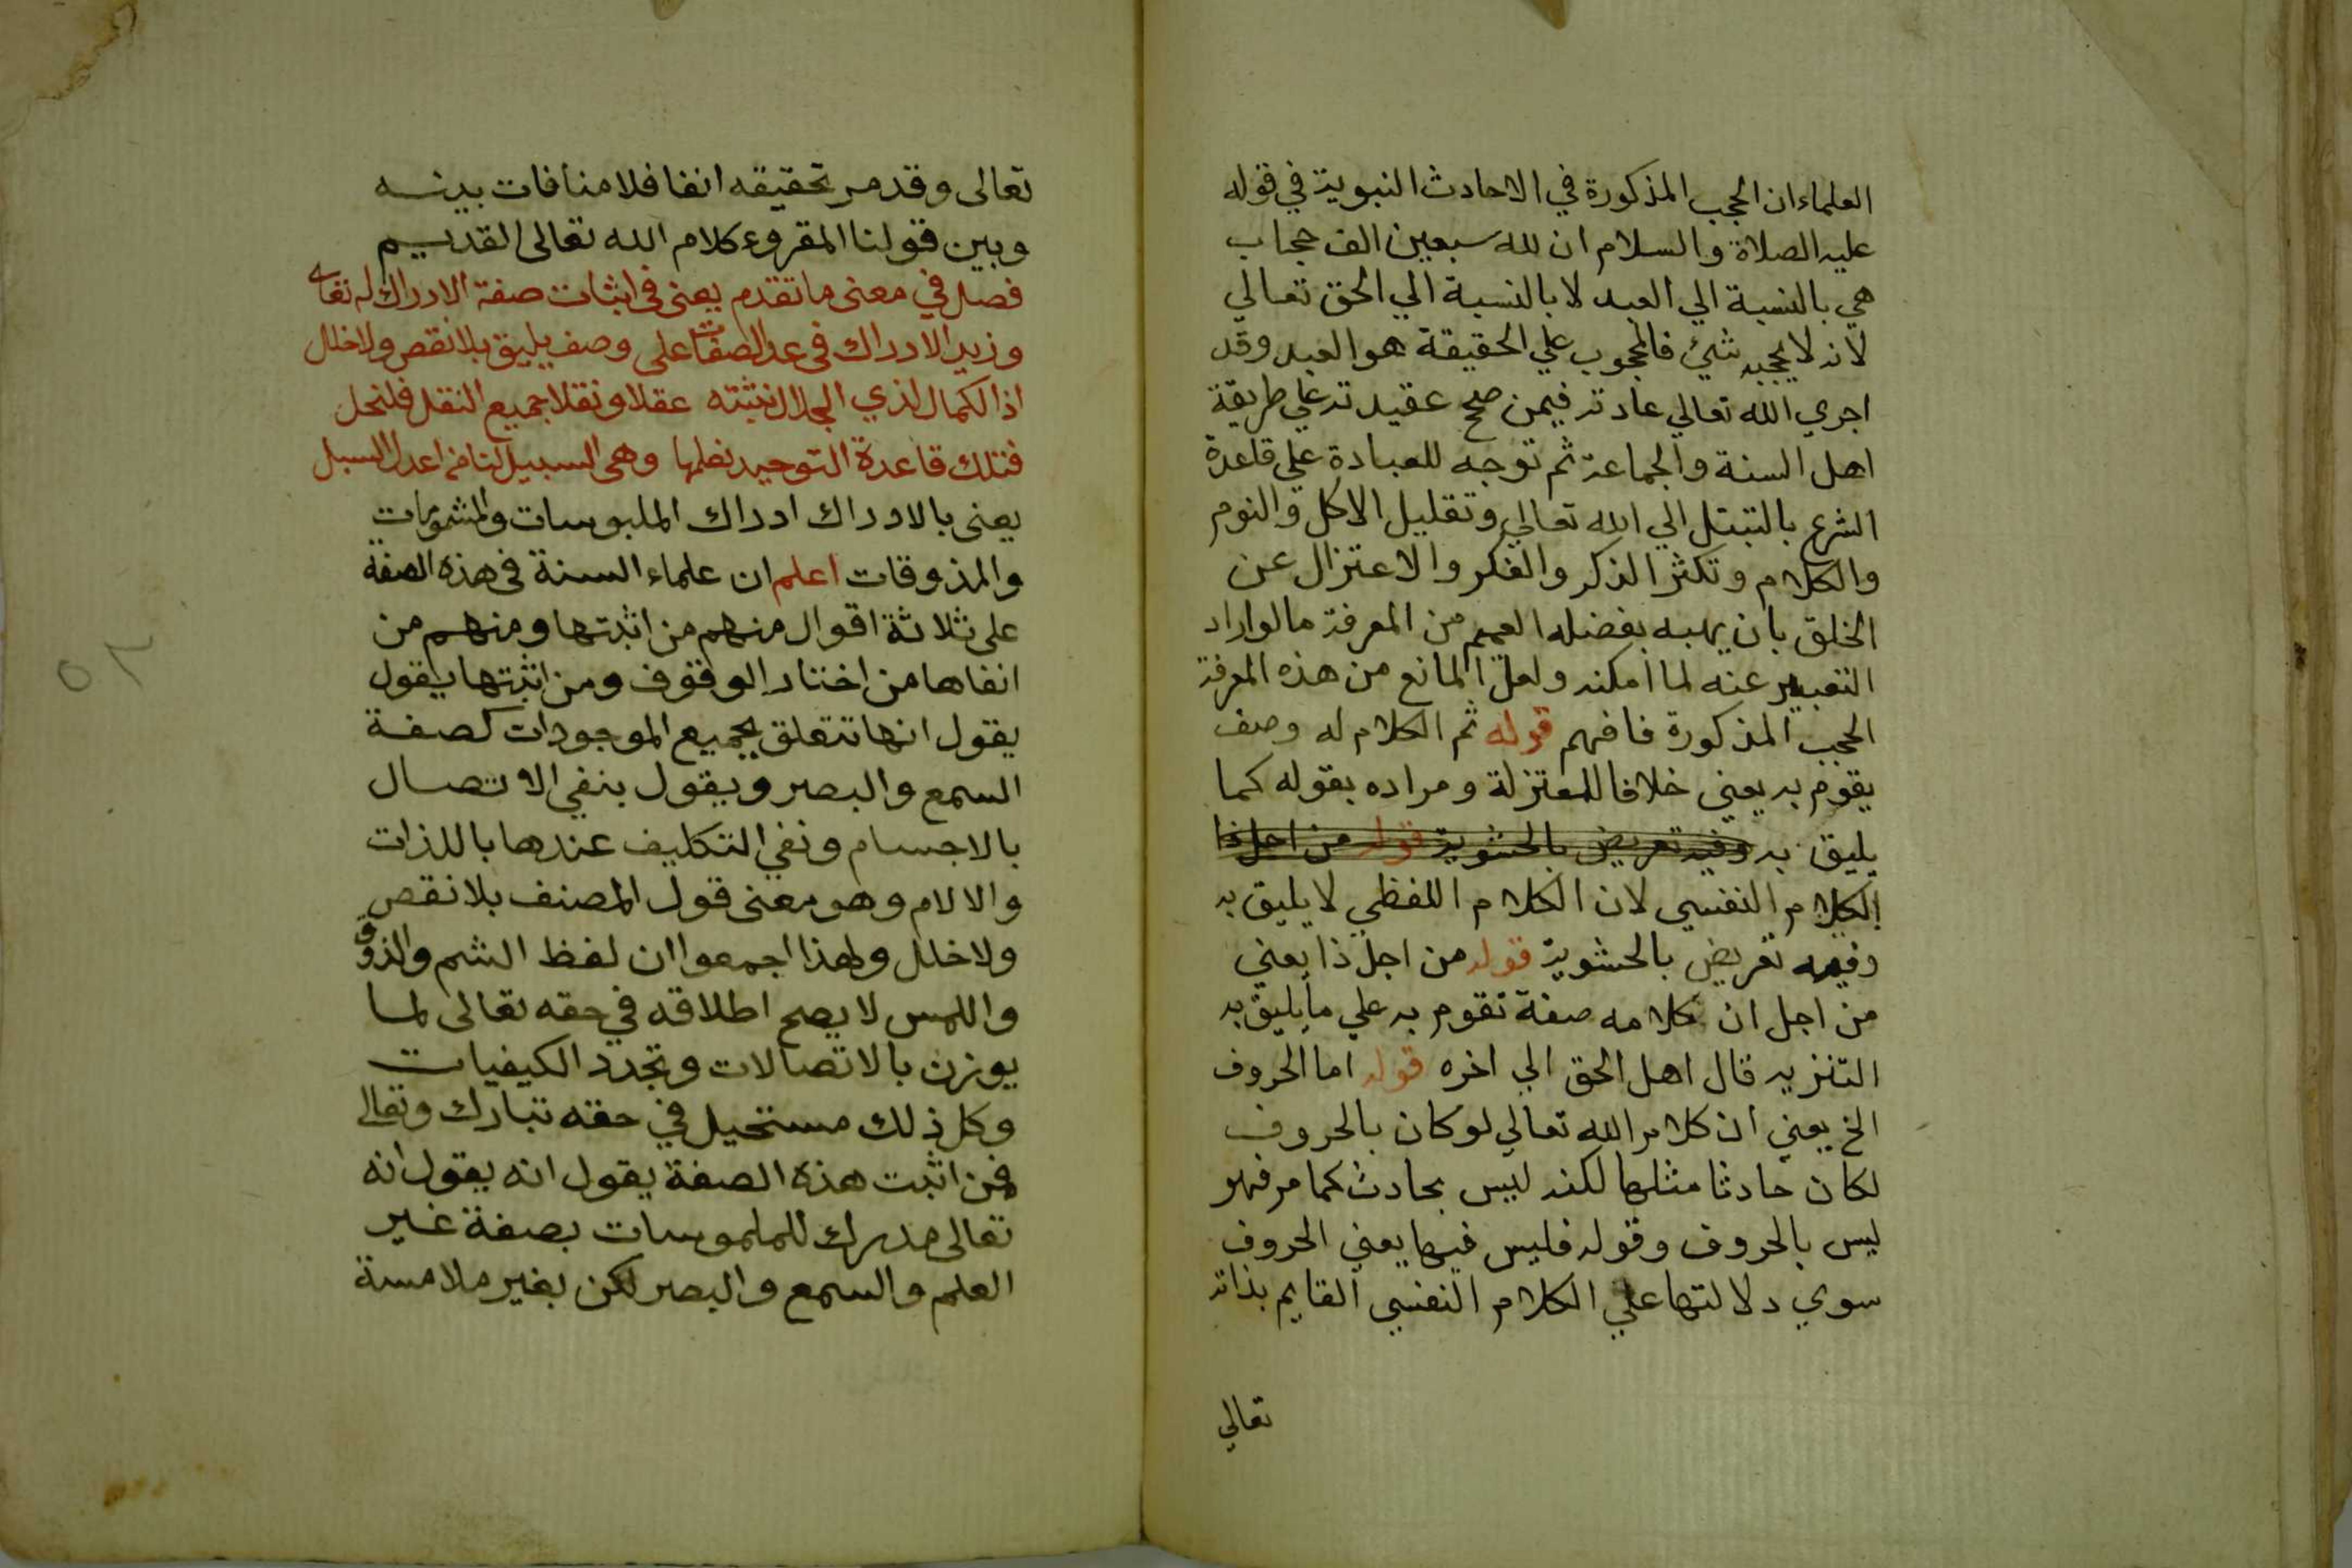 العلماء ان الحجب المذكورة في الاحادث النبوية في قوله
عليه الصلاة والسلام ان لله سبعين الف حجاب
هي بالنسبة الي العبد لا بالنسبة الي الحق تعالي
لانه لا يحجبه شئ فالمحجوب علي الحقيقة هو العبد وقد
اجري الله تعالي عادته فيمن صلح عقيدته علي طريقة
اهل السنة والجماعة ثم توجه للعبادة علي قاعدة
الشرع بالتبتل الي الله تعالي وتقليل الاكل والنوم
والكلام وتكثر الذكر والفكر والاعتزال عن
الخلق بان يهبه بفضله العميم من المعرفة ما لو اراد
التعبير عنه لما امكنه ولعل المانع من هذه المعرفة
الحجب المذكورة فافهم قوله ثم الكلام له وصف
يقوم به يعني خلافا للمعتزلة ومراده بقوله كما
يليق به وفيه تعريض بالحشوية قوله من اجل ذا
الكلام النفسي لان الكلام اللفظي لا يليق به
وفيه تعريض بالحشوية قوله من اجل ذا يعني
من اجل ان كلامه صفة تقوم به علي ما يليق به
التنزيه قال اهل الحق الي اخره قوله اما الحروف
الخ يعني ان كلام الله تعالي لو كان بالحروف
لكان حادثا مثلها لكنه ليس بحادث كما مر فهو
ليس بالحروف وقوله فليس فيها يعني الحروف
سوي دلالتها علي الكلام النفسي القايم بذاته
تعالي
تعالى وقد مر تحقيقه انفا فلا منافات بينه
وبين قولنا المقروء كلام الله تعالى القديم
فصل في معنى ما تقدم يعنى فى اثبات صفة الادراك له تعالى
وزيد الادراك فى عد الصفات على وصف يليق بلا نقص ولا خلل
اذ الكمال لذي الجلال نثبته عقلا ونقلا جميع النقل فلنحل
فتلك قاعدة التوحيد نعلمها وهى السبيل لنا من اعدل السبل
يعنى بالادراك ادراك الملبوسات والمشمومات
والمذوقات اعلم ان علماء السنة فى هذه الصفة
على ثلاثة اقوال منهم من اثبتها ومنهم من
انفاها من اختار الوقوف ومن اثبتها يقول
يقول انها تتعلق بجميع الموجودات كصفة
السمع والبصر ويقول بنفي الاتصال
بالاجسام ونفي التكليف عندها باللذات
والالام وهو معنى قول المصنف بلا نقص
ولا خلل ولهذا اجمعوا ان لفظ الشم والذوق
واللمس لا يصح اطلاقه في حقه تعالى لما
يوزن بالاتصالات وتجدد الكيفيات
وكل ذلك مستحيل في حقه تبارك وتعالى
فمن اثبت هذه الصفة يقول انه يقول انه
تعالى مدرك للملموسات بصفة غير
العلم والسمع والبصر لكن بغير ملامسة